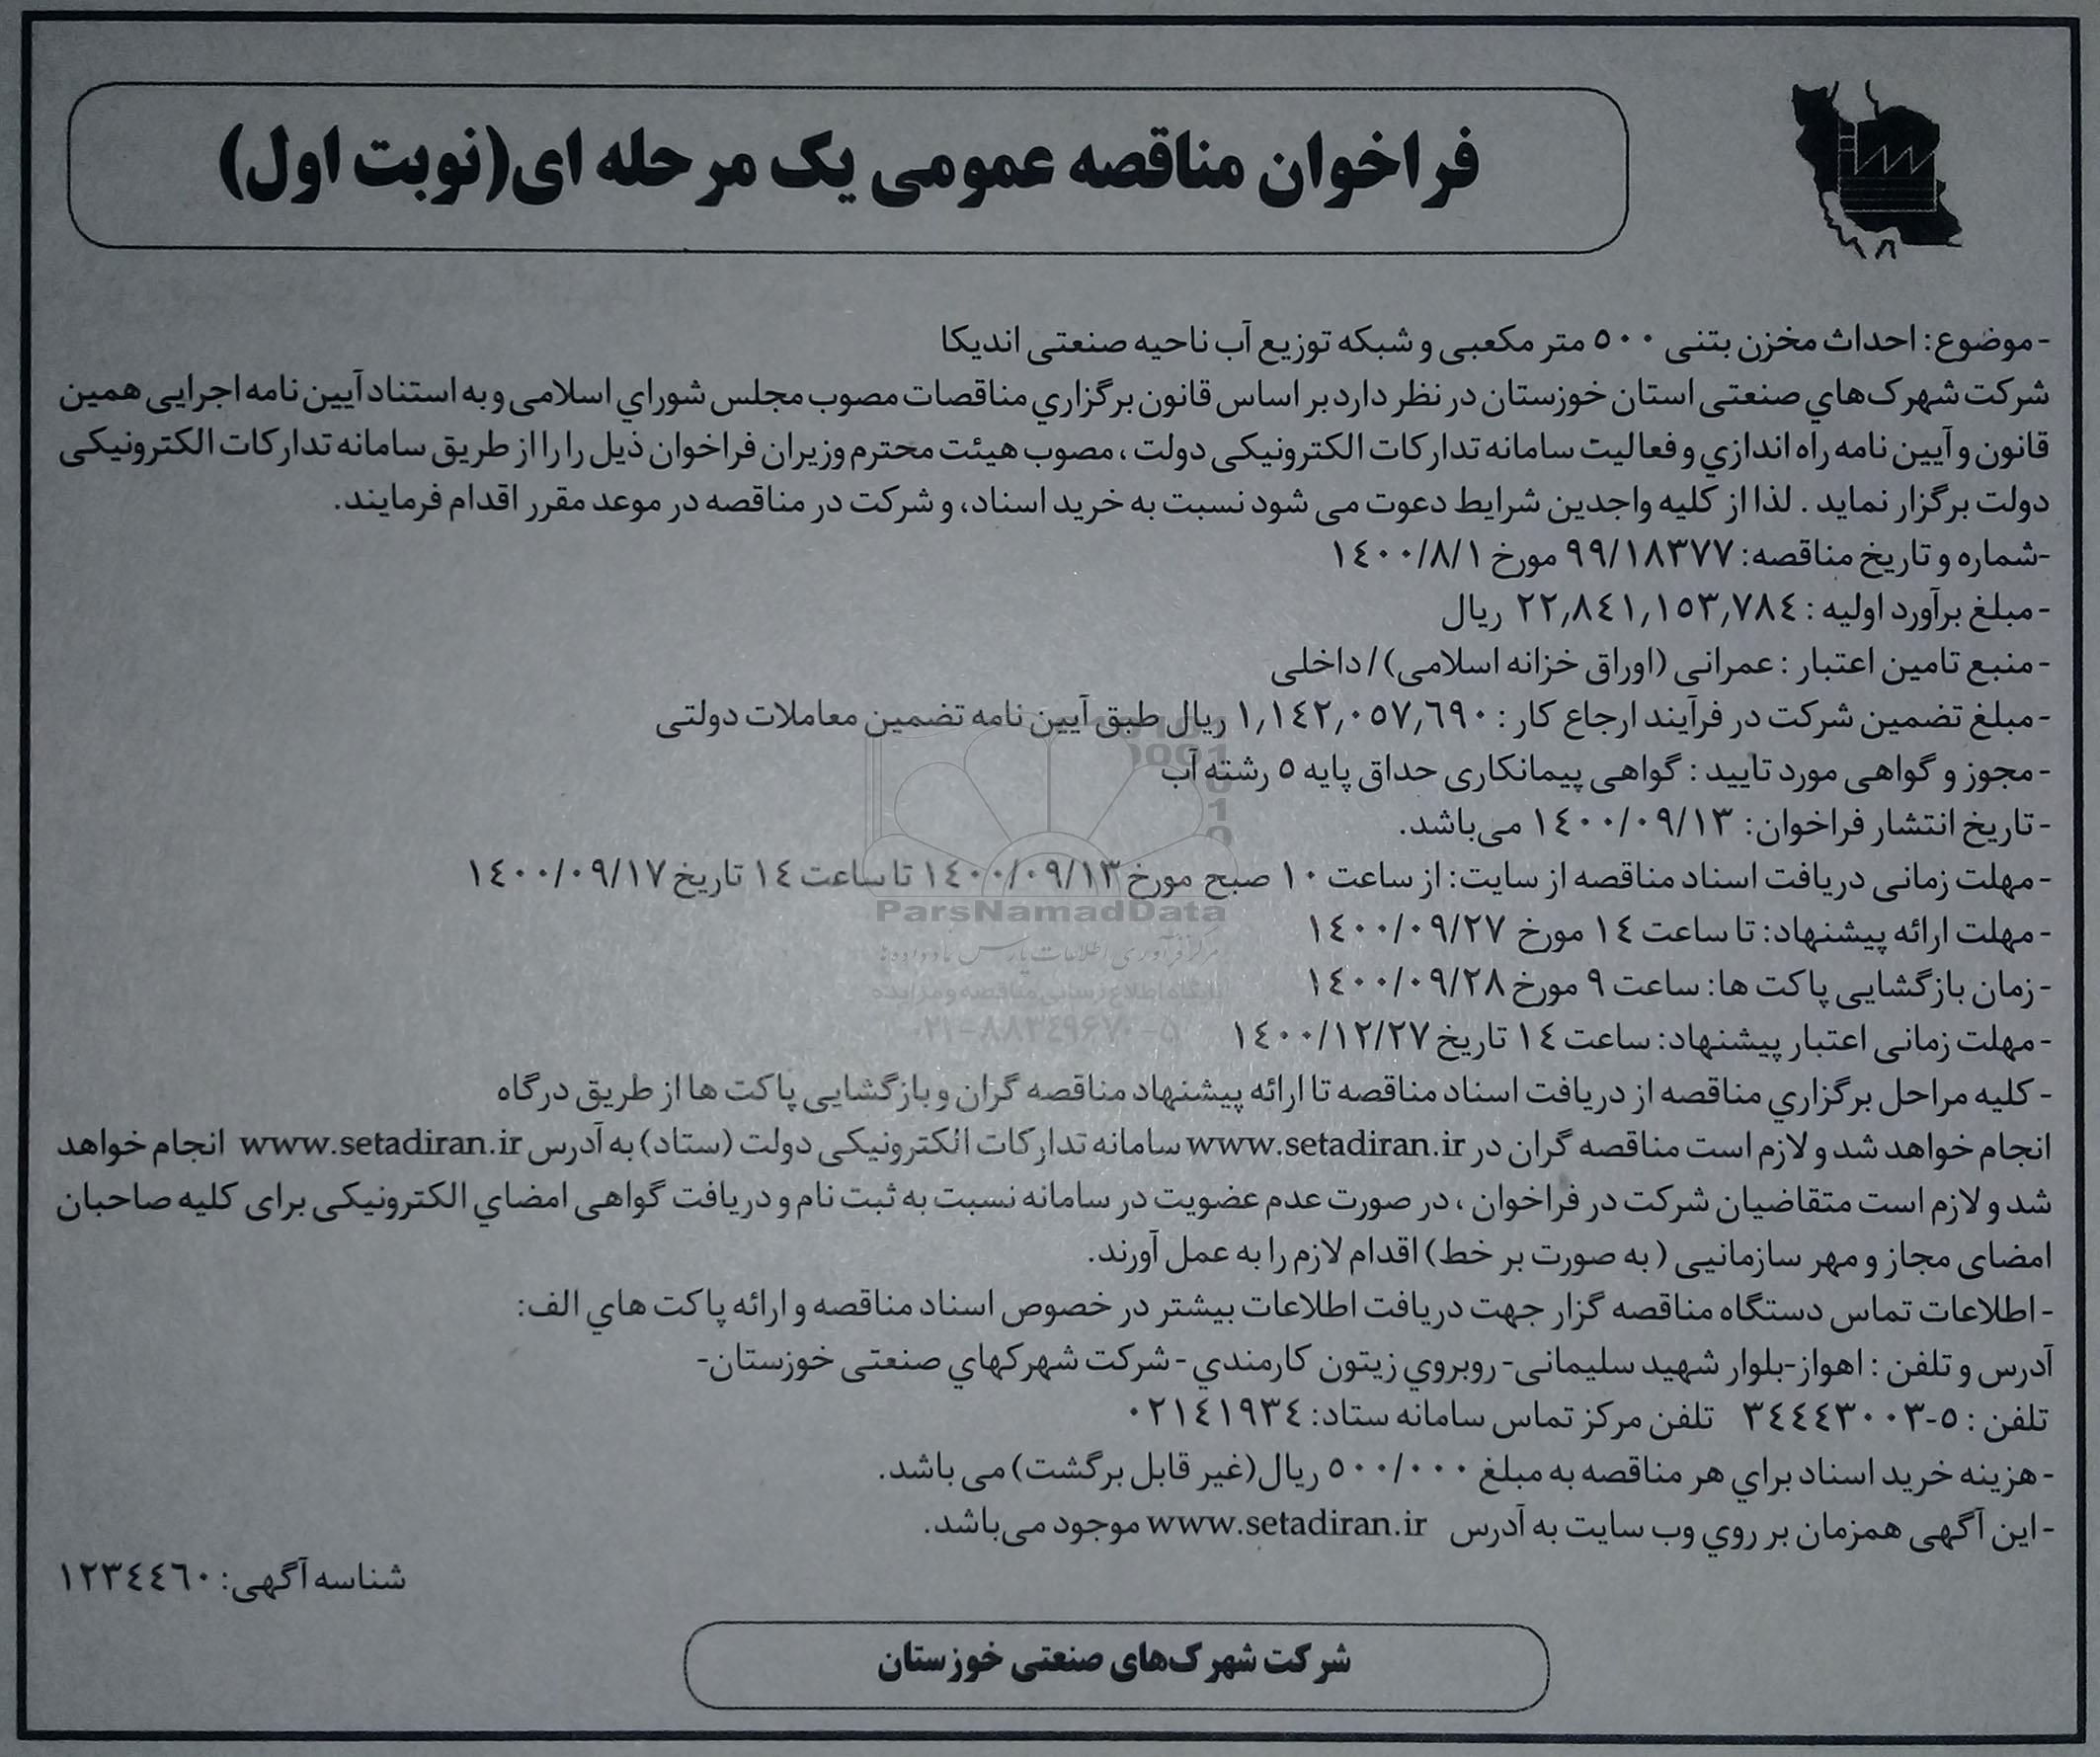 فراخوان مناقصه عمومی یک مرحله ای(نوبت اول)
- موضوع: احداث مخزن بتنی ٥٠٠ متر مکعبی و شبکه توزیع آب ناحیه صنعتی اندیکا
شرکت شهرک‌هاي صنعتی استان خوزستان در نظر دارد بر اساس قانون برگزاري مناقصات مصوب مجلس شوراي اسلامی و به استناد آیین نامه اجرایی همین
قانون و آیین نامه راه اندازي و فعالیت سامانه تدارکات الکترونیکی دولت ، مصوب هیئت محترم وزیران فراخوان ذیل را را از طریق سامانه تدارکات الکترونیکی
دولت برگزار نماید . لذا از کلیه واجدین شرایط دعوت می شود نسبت به خرید اسناد، و شرکت در مناقصه در موعد مقرر اقدام فرمایند.
-شماره و تاریخ مناقصه: ٩٩/١٨٣٧٧ مورخ ١٤٠٠/٨/١
- مبلغ برآورد اولیه : ٢٢,٨٤١,١٥٣,٧٨٤ ریال
- منبع تامین اعتبار : عمرانی (اوراق خزانه اسلامی) / داخلی
- مبلغ تضمین شرکت در فرآیند ارجاع کار : ١,١٤٢,٠٥٧,٦٩٠ ریال طبق آیین نامه تضمین معاملات دولتی
- مجوز و گواهی مورد تایید : گواهی پیمانکاری حداق پایه ٥ رشته آب
- تاریخ انتشار فراخوان: ١٤٠٠/٠٩/١٣ می‌باشد.
- مهلت زمانی دریافت اسناد مناقصه از سایت: از ساعت ١٠ صبح مورخ ١٤٠٠/٠٩/١٣ تا ساعت ١٤ تاریخ ١٤٠٠/٠٩/١٧
ParsNamadData
- مهلت ارائه پیشنهاد: تا ساعت ١٤ مورخ ١٤٠٠/٠٩/٢٧
مرکز فرآوری اطلاعات پارس نماد داده‌ها
- زمان بازگشایی پاکت ها: ساعت ٩ مورخ ١٤٠٠/٠٩/٢٨
پایگاه اطلاع رسانی مناقصه و مزایده
- مهلت زمانی اعتبار پیشنهاد: ساعت ١٤ تاریخ ١٤٠٠/١٢/٢٧
۰۲۱-۸۸۳۴۹۶۷۰-۵
- کلیه مراحل برگزاري مناقصه از دریافت اسناد مناقصه تا ارائه پیشنهاد مناقصه گران و بازگشایی پاکت ها از طریق درگاه
انجام خواهد شد و لازم است مناقصه گران در www.setadiran.ir سامانه تدارکات الکترونیکی دولت (ستاد) به آدرس www.setadiran.ir انجام خواهد
شد و لازم است متقاضیان شرکت در فراخوان ، در صورت عدم عضویت در سامانه نسبت به ثبت نام و دریافت گواهی امضاي الکترونیکی برای کلیه صاحبان
امضای مجاز و مهر سازمانیی ( به صورت بر خط) اقدام لازم را به عمل آورند.
- اطلاعات تماس دستگاه مناقصه گزار جهت دریافت اطلاعات بیشتر در خصوص اسناد مناقصه و ارائه پاکت هاي الف:
آدرس و تلفن : اهواز-بلوار شهید سلیمانی- روبروي زیتون کارمندي - شرکت شهرکهاي صنعتی خوزستان-
تلفن : ٥-٣٤٤٤٣٠٠٣ تلفن مرکز تماس سامانه ستاد: ٠٢١٤١٩٣٤
- هزینه خرید اسناد براي هر مناقصه به مبلغ ٥٠٠/٠٠٠ ریال(غیر قابل برگشت) می باشد.
- این آگهی همزمان بر روي وب سایت به آدرس www.setadiran.ir موجود می‌باشد.
شناسه آگهی: ١٢٣٤٤٦٠
شرکت شهرک‌های صنعتی خوزستان